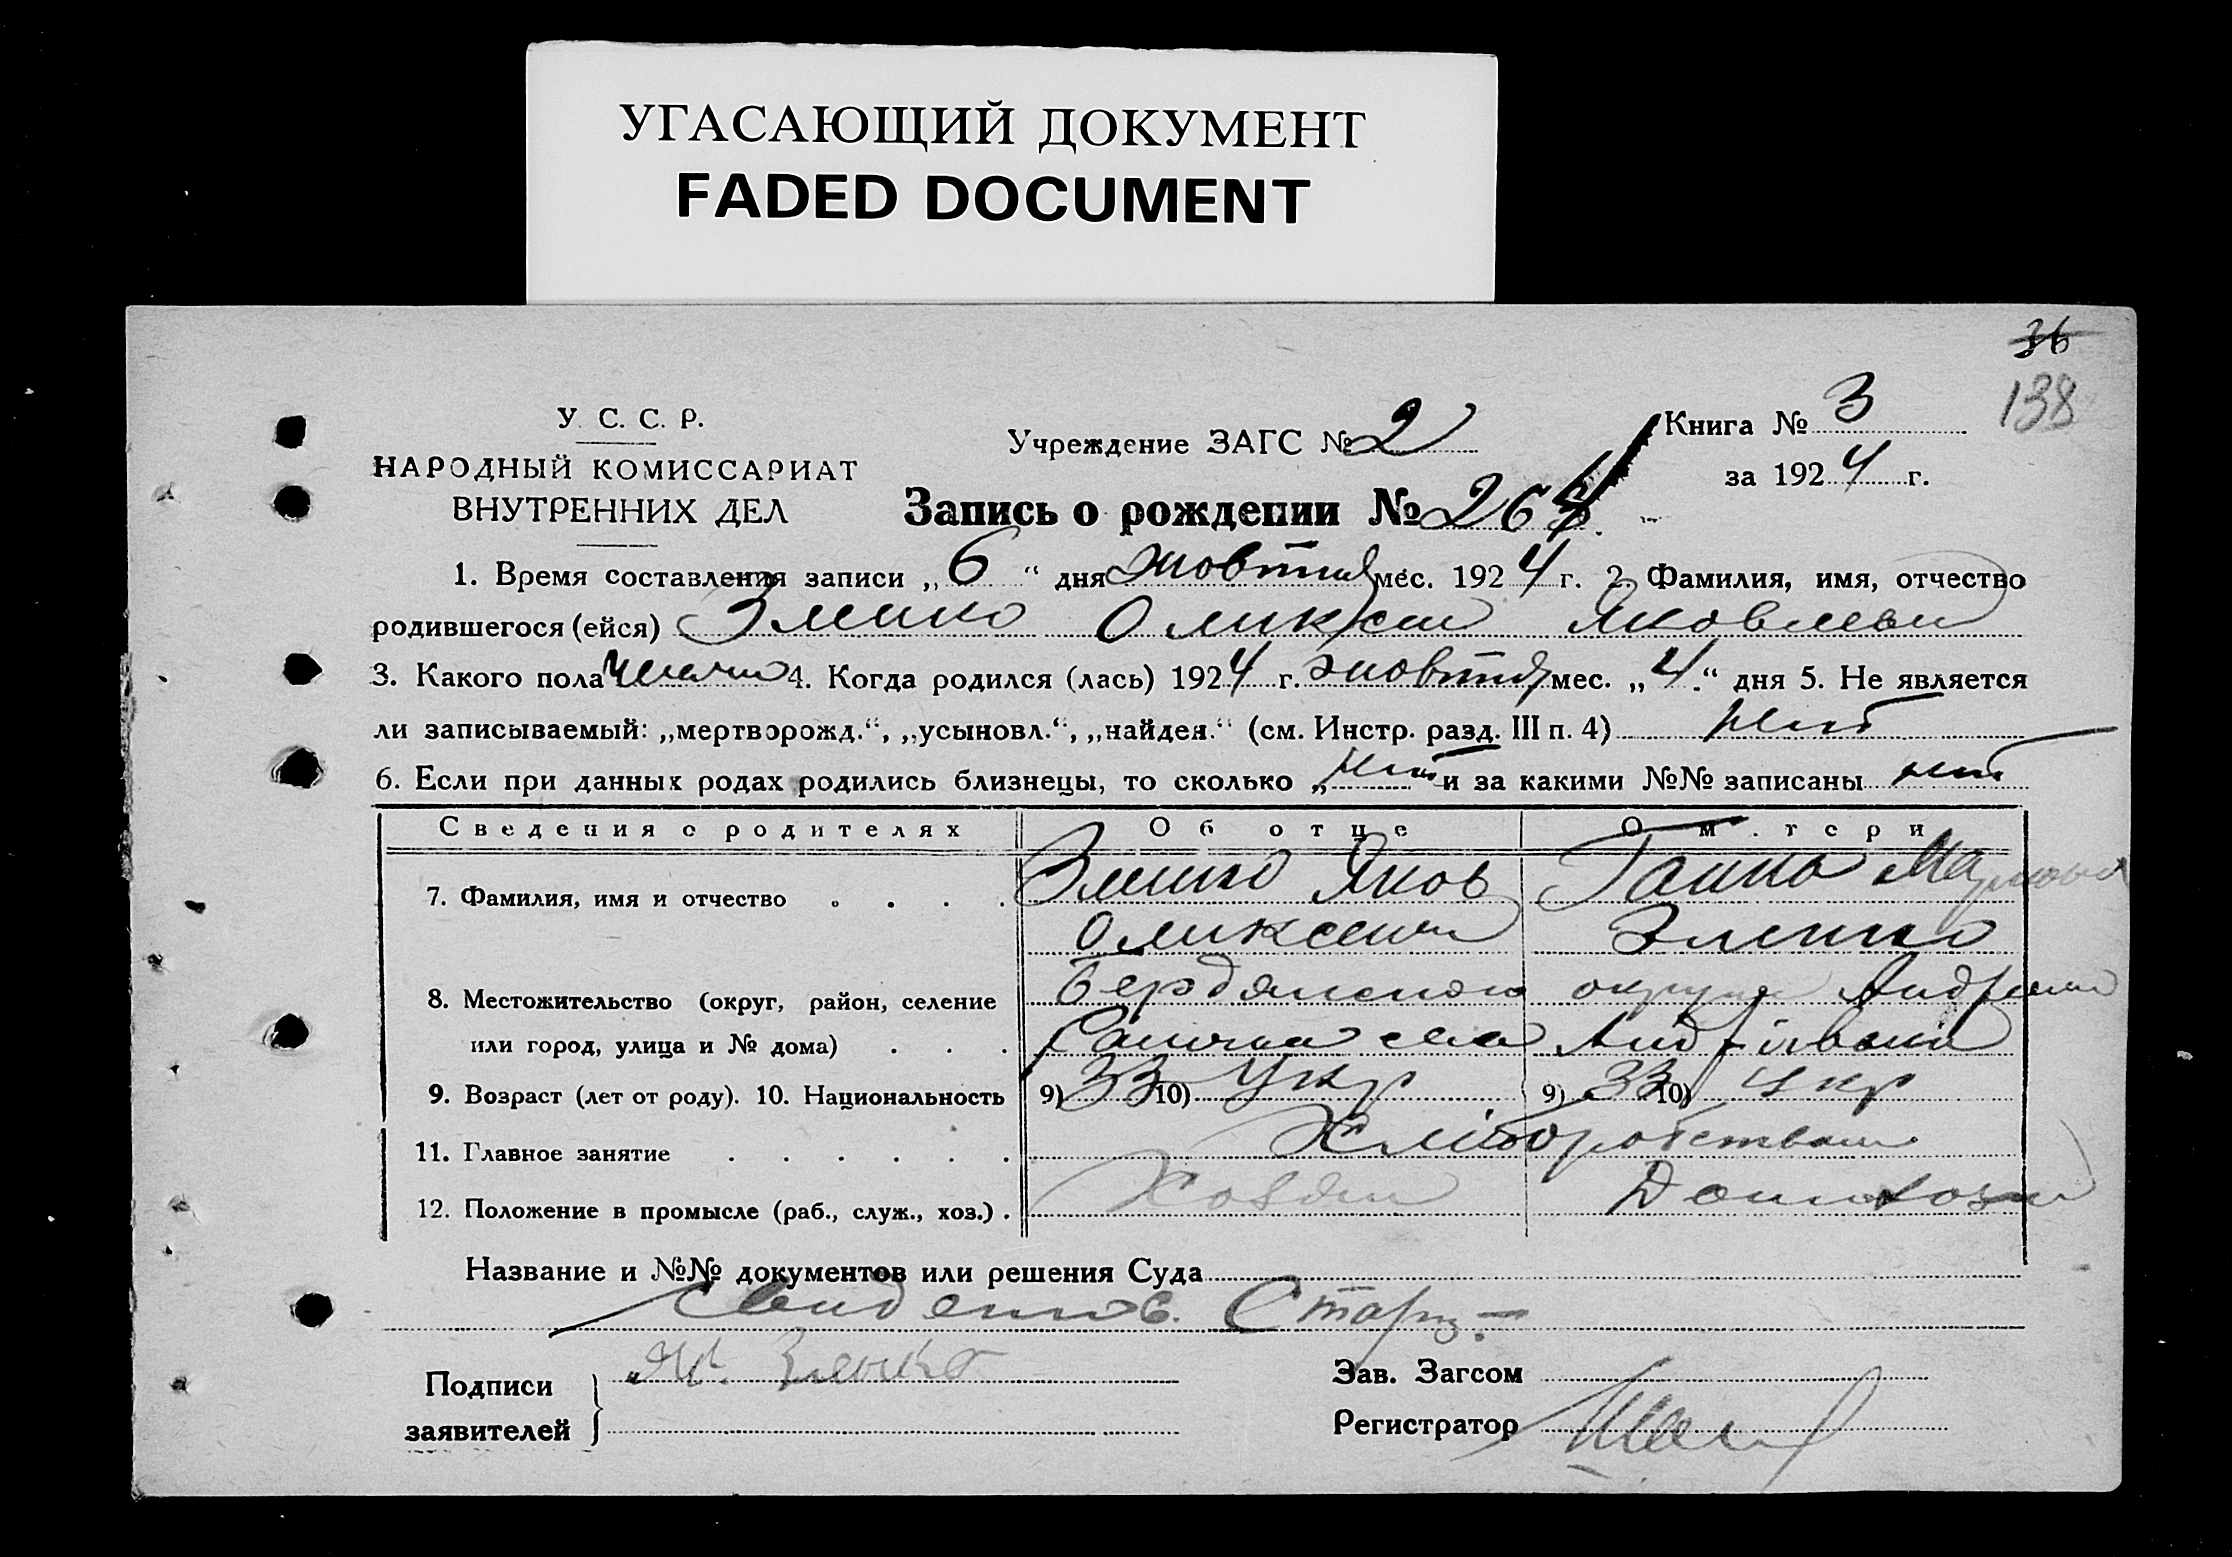 УГАСАЮЩИЙ ДОКУМЕНТ
FADED DOCUMENT
36
138
У. С. С. Р.
НАРОДНЫЙ КОМИССАРИАТ
ВНУТРЕННИХ ДЕЛ
Учреждение ЗАГС № 2
Книга № 3
за 1924 г.
Запись о рождении № 264
1. Время составления записи „ 6 “ дня жовтня мес. 1924 г. 2. Фамилия, имя, отчество
родившегося (ейся) Злыко Оликсей Яковлевич
3. Какого пола 4. Когда родился (лась) 1924 г. жовтня мес. „ 4 “ дня 5. Не является
ли записываемый: „мертворожд.“, „усыновл.“, „найден.“ (см. Инстр. разд. III п. 4) нет
6. Если при данных родах родились близнецы, то сколько „ нет и за какими №№ записаны нет
Сведения о родителях Об отце О матери
7. Фамилия, имя и отчество . . . . Яков Ганна
Оликсеич
8. Местожительство (округ, район, селение Бердянского округа
или город, улица и № дома) . . . села Андріівки
9. Возраст (лет от роду). 10. Национальность 9) 33 10) Укр 9) 33 10) Укр
11. Главное занятие . . . . . . Хліборобством
12. Положение в промысле (раб., служ., хоз.) . Хозяин Домохоз
Название и №№ документов или решения Суда
Подписи
заявителей
Зав. Загсом
Регистратор